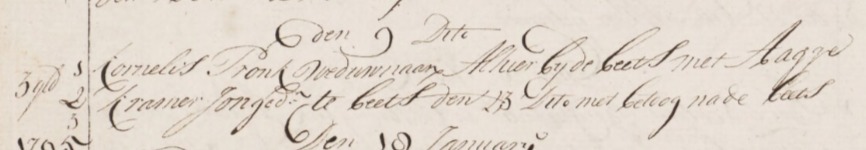 den 9 Dito
3 gld 1 Kornelis Pronk Weduwnaar Alhier by de beets met Aagge
2 Kramer Jonged.r te beets den 23 Dito met betoog na de beets
3
Den 18 January